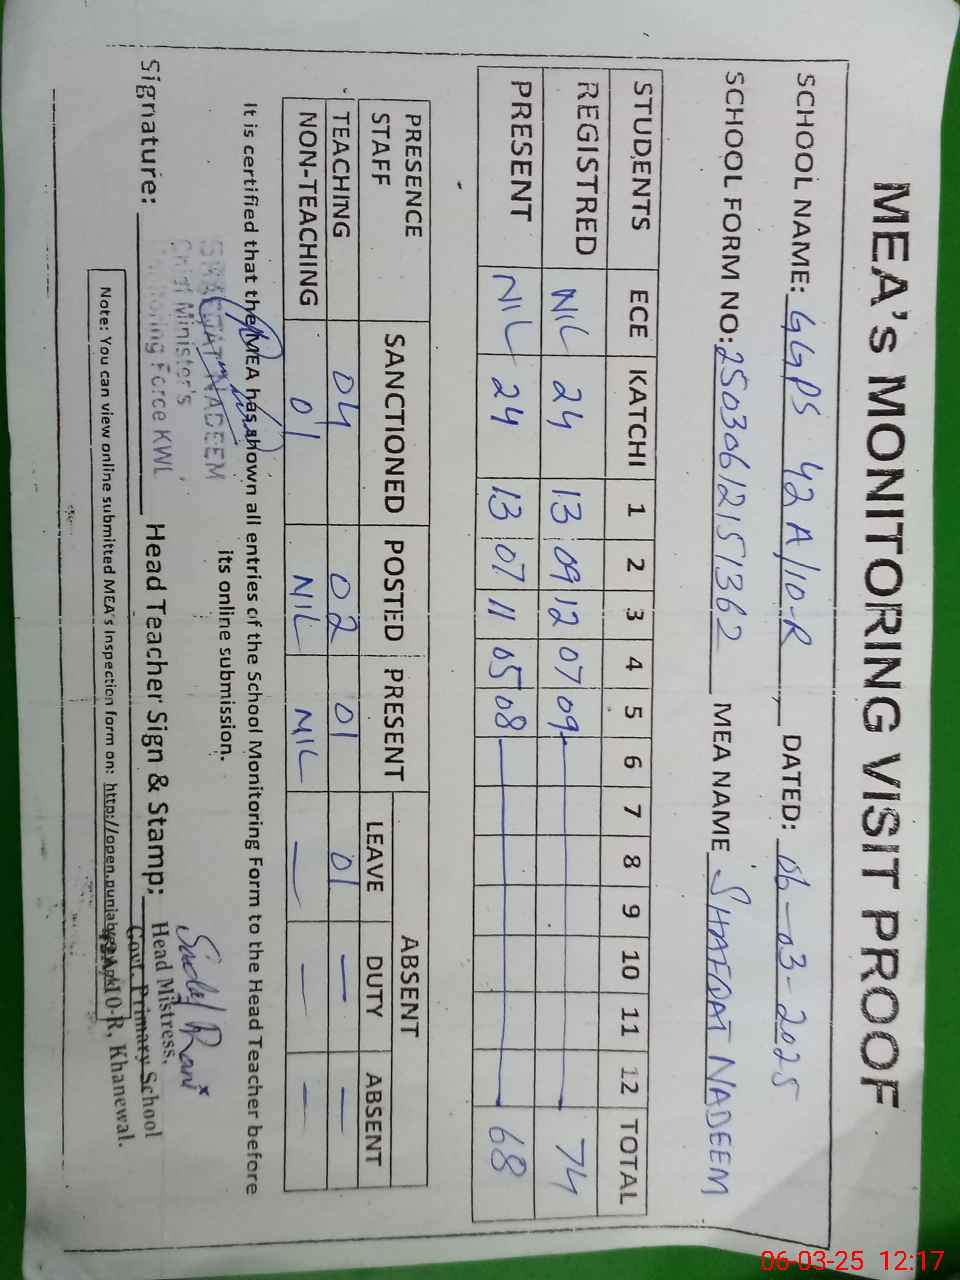 MEA's MONITORING VISIT PROOF
SCHOOL NAME: GGPS 42 A/10-R, DATED: 06-03-2025
SCHOOL FORM NO: 25030612151362 MEA NAME SHAFQAT NADEEM
STUDENTS ECE KATCHI 1 2 3 4 5 6 7 8 9 10 11 12 TOTAL
REGISTRED NIL 24 13 09 12 07 09 74
PRESENT NIL 24 13 07 11 05 08 68
PRESENCE STAFF SANCTIONED POSTED PRESENT ABSENT
LEAVE DUTY ABSENT
TEACHING 04 02 01 01 — —
NON-TEACHING 01 NIL NIL — — —
It is certified that the MEA has shown all entries of the School Monitoring Form to the Head Teacher before
its online submission.
SHAFQAT NADEEM
Chief Minister's
Monitoring Force KWL
Signature: Head Teacher Sign & Stamp:
Head Mistress,
Govt. Primary School
10-R, Khanewal.
Note: You can view online submitted MEA's Inspection form on: http://open.punjab
06-03-25 12:17